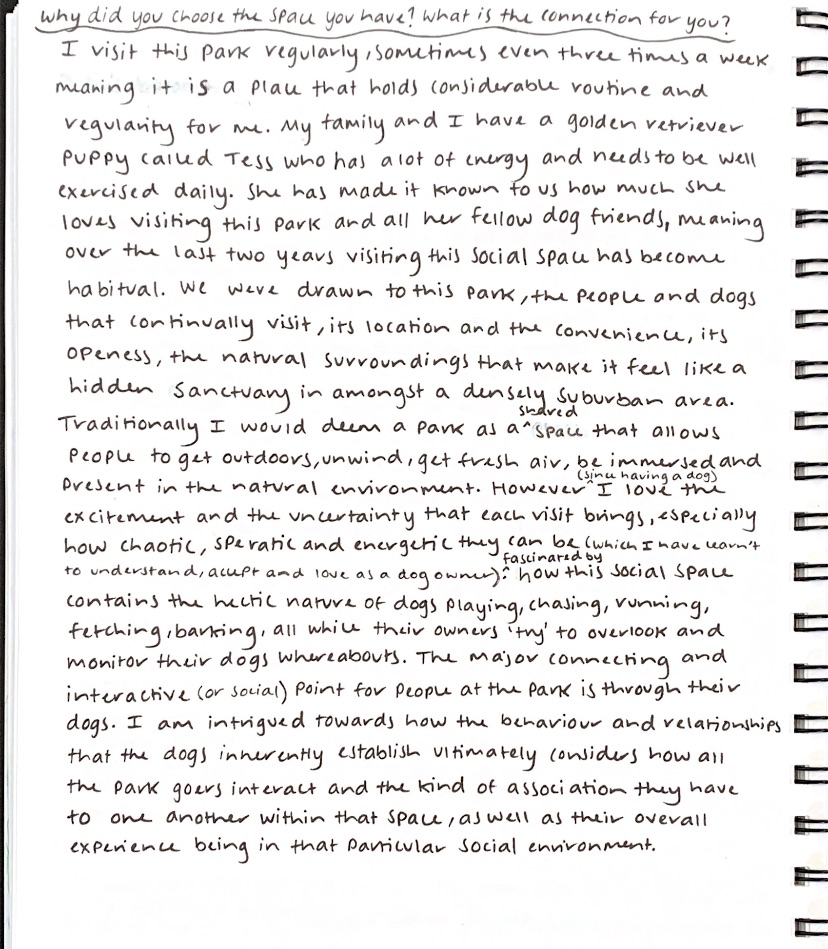 why did you choose the space you have? What is the connection for you?
I visit this park regularly, sometimes even three times a week
meaning it is a place that holds considerable routine and
regularity for me. My family and I have a golden retriever
puppy called Tess who has a lot of energy and needs to be well
exercised daily. She has made it known to us how much she
loves visiting this park and all her fellow dog friends, meaning
over the last two years visiting this social space has become
habitual. We were drawn to this park, the people and dogs
that continually visit, its location and the convenience, its
openess, the natural surroundings that make it feel like a
hidden sanctuary in amongst a densely suburban area.
Traditionally I would deem a park as a ^shared space that allows
people to get outdoors, unwind, get fresh air, be immersed and
present in the natural environment. However ^(since having a dog) I love the
excitement and the uncertainty that each visit brings, especially
how chaotic, speratic and energetic they can be (which I have learn't
to understand, accept and love as a dog owner). ^fascinated by how this social space
contains the hectic nature of dogs playing, chasing, running,
fetching, barking, all while their owners 'try' to overlook and
monitor their dogs whereabouts. The major connecting and
interactive (or social) point for people at the park is through their
dogs. I am intrigued towards how the behaviour and relationships
that the dogs inherently establish ultimately considers how all
the park goers interact and the kind of association they have
to one another within that space, as well as their overall
experience being in that particular social environment.